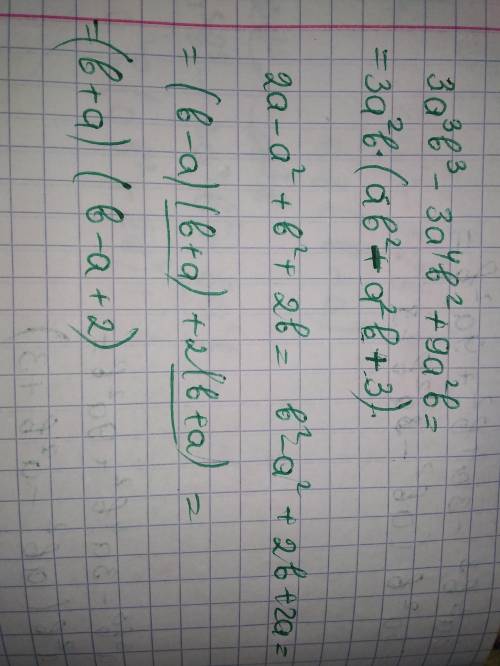 3a³b³ - 3a⁴b² + 9a²b =
= 3a²b·(ab² - a²b + 3)
2a - a² + b² + 2b = b² - a² + 2b + 2a =
= (b - a)(b + a) + 2(b + a) =
= (b + a)(b - a + 2)